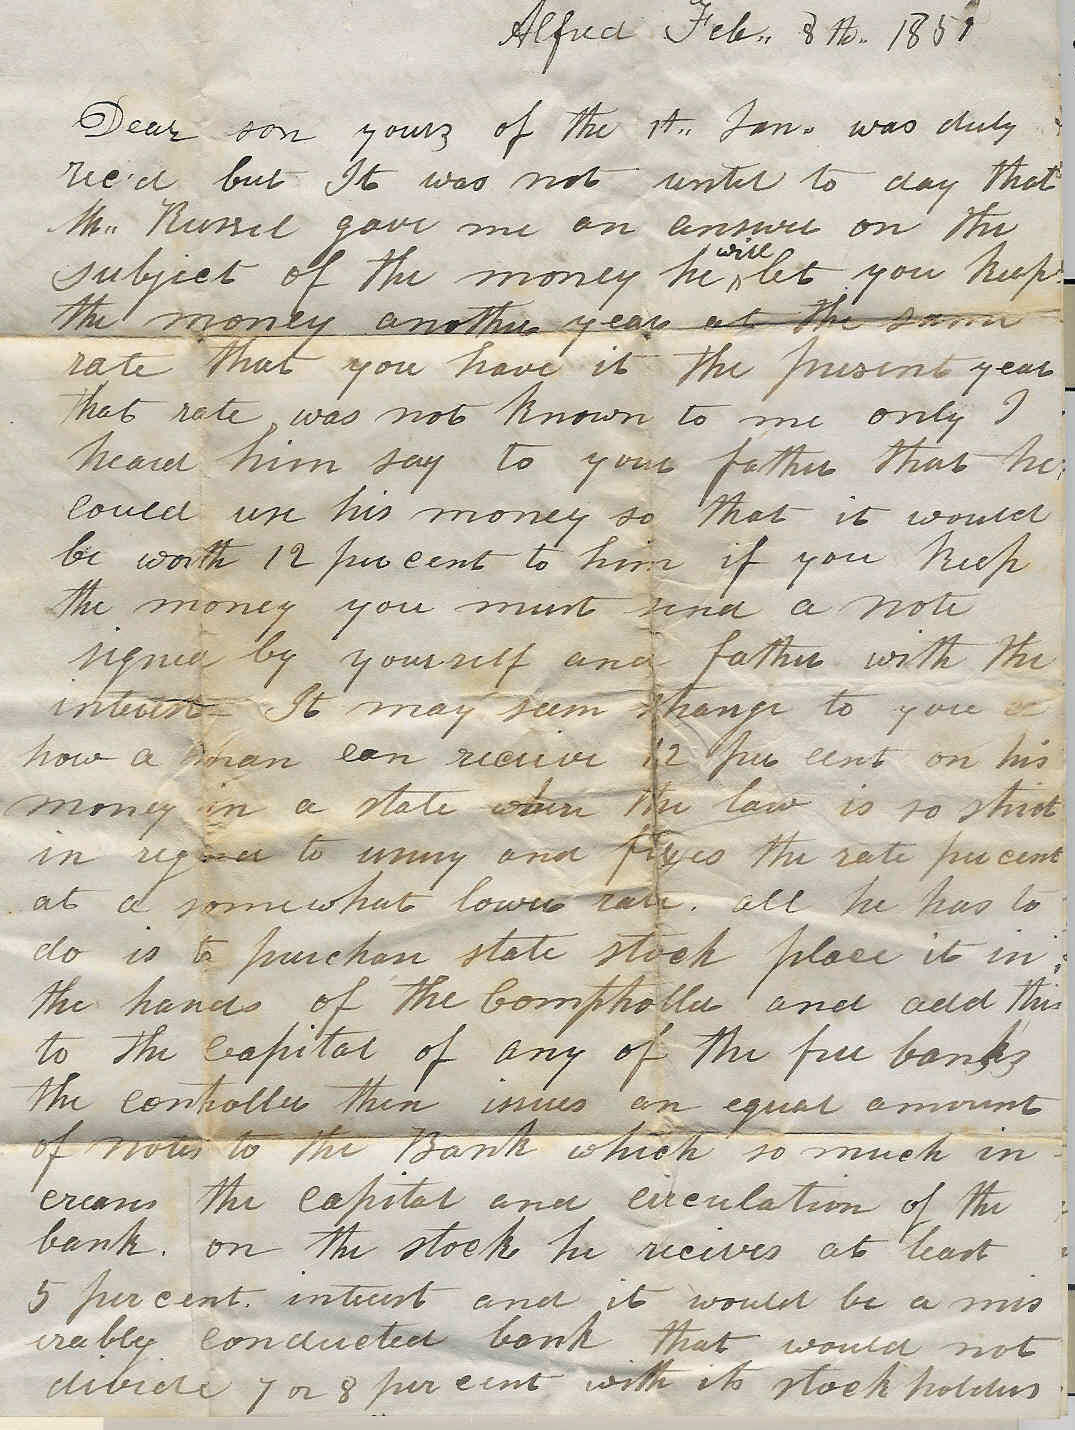 Alfred Feb.. 8th.. 1851
Dear son yours of the 1st.. Jan. was duly
rec'd but It was not until to day that
Mr.. Russel gave me an answer on the
subject of the money he will let you keep
the money another year at the same
rate that you have it the present year
that rate was not known to me only I
heard him say to your father that he
could use his money so that it would
be worth 12 per cent to him if you keep
the money you must send a note
signed by yourself and father with the
interest - It may seem strange to you
how a man can receive 12 per cent on his
money in a state where the law is so strict
in regard to usury and fixes the rate per cent
at a somewhat lower rate. all he has to
do is to purchase state stock place it in
the hands of the Comptroller and add this
to the capital of any of the free banks
the controller then issues an equal amount
of notes to the Bank which so much in
creases the capital and circulation of the
bank. on the stock he recives at least
5 per cent. interest and it would be a mis
erably conducted bank that would not
divide 7 or 8 per cent with its stock holders